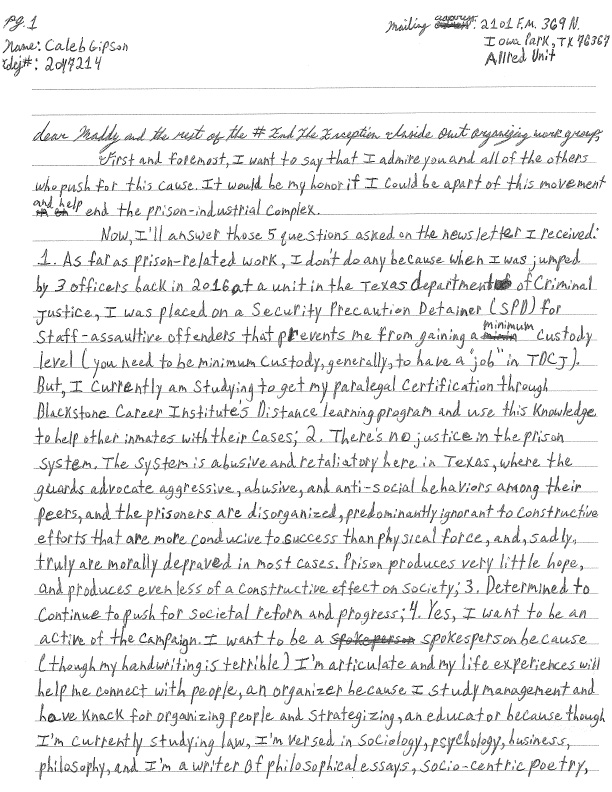 Pg. 1
Name: Caleb Gipson
tdcj#: 2047214
Mailing address: 2101 F.M. 369 N.
Iowa Park, TX 76367
Allred Unit
dear Maddy and the rest of the # End The Exception Inside Out organizing work group,
First and foremost, I want to say that I admire you and all of the others
who push for this cause. It would be my honor if I could be apart of this movement
and help end the prison-industrial complex.
Now, I'll answer those 5 questions asked on the newsletter I received:
1. As far as prison-related work, I don't do any because when I was jumped
by 3 officers back in 2016 at a unit in the Texas department of Criminal
Justice, I was placed on a Security Precaution Detainer (SPD) for
Staff-assaultive offenders that prevents me from gaining a minimum custody
level (you need to be minimum custody, generally, to have a "job" in TDCJ).
But, I currently am studying to get my paralegal Certification through
Blackstone Career Institute's Distance learning program and use this knowledge
to help other inmates with their cases; 2. There's no justice in the prison
system. The system is abusive and retaliatory here in Texas, where the
guards advocate aggressive, abusive, and anti-social behaviors among their
peers, and the prisoners are disorganized, predominantly ignorant to constructive
efforts that are more conducive to success than physical force, and, sadly,
truly are morally depraved in most cases. Prison produces very little hope,
and produces even less of a constructive effect on society; 3. Determined to
continue to push for societal reform and progress; 4. Yes, I want to be an
active of the campaign. I want to be a spokesperson because
(though my handwriting is terrible) I'm articulate and my life experiences will
help me connect with people, an organizer because I study management and
have knack for organizing people and strategizing, an educator because though
I'm currently studying law, I'm versed in sociology, psychology, business,
philosophy, and I'm a writer of philosophical essays, socio-centric poetry,